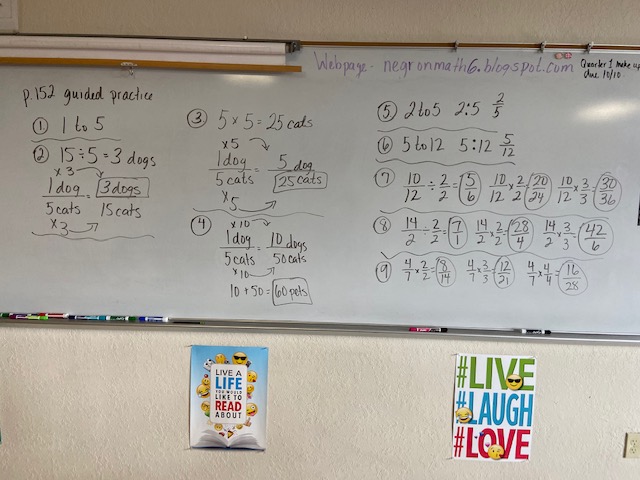 Webpage - negronmath6.blogspot.com
Quarter 1 make up
due 10/10
p.152 guided practice
① 1 to 5
② 15÷5=3 dogs
x3
1dog = 3dogs
5cats 15cats
x3
③ 5 x 5 = 25 cats
x5
1dog = 5 dog
5cats 25cats
x5
④ x10
1dog = 10 dogs
5cats 50cats
x10
10 + 50 = 60 pets
⑤ 2 to 5 2:5 2/5
⑥ 5 to 12 5:12 5/12
⑦ 10/12 ÷ 2/2 = 5/6 10/12 x 2/2 = 20/24 10/12 x 3/3 = 30/36
⑧ 14/2 ÷ 2/2 = 7/1 14/2 x 2/2 = 28/4 14/2 x 3/3 = 42/6
⑨ 4/7 x 2/2 = 8/14 4/7 x 3/3 = 12/21 4/7 x 4/4 = 16/28
LIVE A
LIFE
YOU WOULD
LIKE TO
READ
ABOUT
#LIVE
#LAUGH
#LOVE